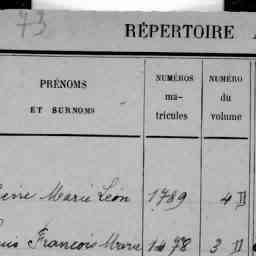 73
RÉPERTOIRE A
PRÉNOMS
ET SURNOMS
NUMÉROS
ma-
tricules
NUMÉRO
du
volume
Marie Léon 1789 4 II
François 1478 3 II